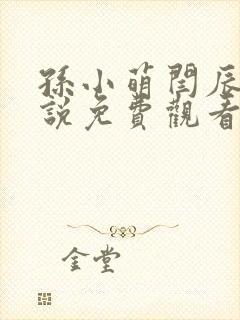 孫小萌閆辰
說免費觀看
金堂